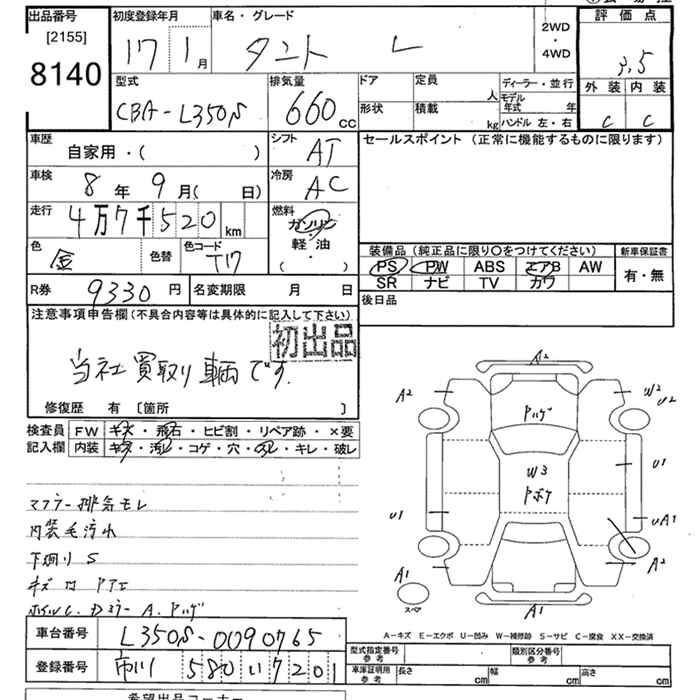 出品番号 [2155] 8140
初度登録年月 17 1月
車名・グレード タント L
2WD・4WD
評価点 3.5
型式 CBA-L350S
排気量 660 cc
ドア 定員 人
形状 積載 kg
ディーラー・並行
モデル年式 年
ハンドル 左・右
外装 内装
C C
車歴 自家用・( )
シフト AT
セールスポイント (正常に機能するものに限ります)
車検 8年 9月( 日)
冷房 AC
走行 4万7千520 km
燃料 ガソリン・軽油・( )
色 金 色替 色コード T17
装備品(純正品に限り○をつけてください)
新車保証書
PS PW ABS エアB AW
有・無
SR ナビ TV カワ
R券 9330円 名変期限 月 日
後日品
注意事項申告欄(不具合内容等は具体的に記入して下さい)
初出品
当社買取り車両です.
修復歴 有 [箇所 ]
検査員 FW キズ・飛石・ヒビ割・リペア跡・×要
記入欄 内装 キズ・汚れ・コゲ・穴・スレ・キレ・破レ
マフラー排気モレ
内装毛汚れ
下廻りS
A2
A2 W2 U2
ヤハゲ
W3 U1
ヤボケ
U1 UA1
A2
A1
スペア
A1
A-キズ E-エクボ U-凹み W-補修跡 S-サビ C-腐食 XX-交換済
車台番号 L350S-0090765
型式指定番号 参考 類別区分番号 参考
登録番号 市川 580 い 7201
車庫証明用 参考 長さ cm 幅 cm 高さ cm
希望出品コーナー